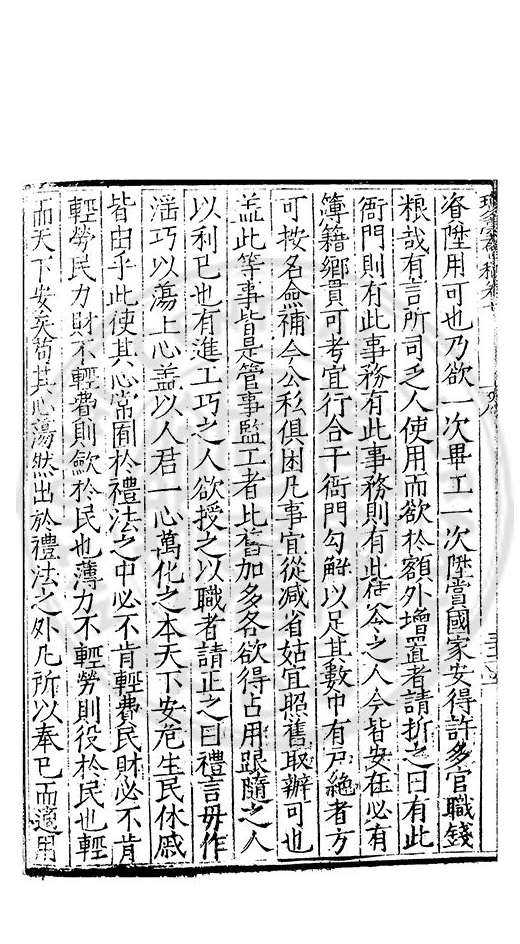 眷陞用可也乃欲一次畢工一次陞賞國家安得許多官職錢
粮哉有言所司乏人使用而欲於額外增置者請折之曰有此
衙門則有此事務有此事務則有此之人今皆安在必有
簿籍鄉貫可考宜行合干衙門勾解以足其數中有戸絶者方
可按名僉補今公私俱困凡事宜從减省姑宜照舊取辦可也
盖此等事皆是管事監工者比舊加多各欲得占用跟隨之人
以利已也有進工巧之人欲授之以職者請正之曰禮言毋作
滛巧以蕩上心盖以人君一心萬化之本天下安危生民休戚
皆由乎此使其心常囿於禮法之中必不肯輕費民財必不肯
輕勞民力財不輕費則歛於民也薄力不輕勞則役於民也輕
而天下安矣苟其心蕩然出於禮法之外凡所以奉已而適用